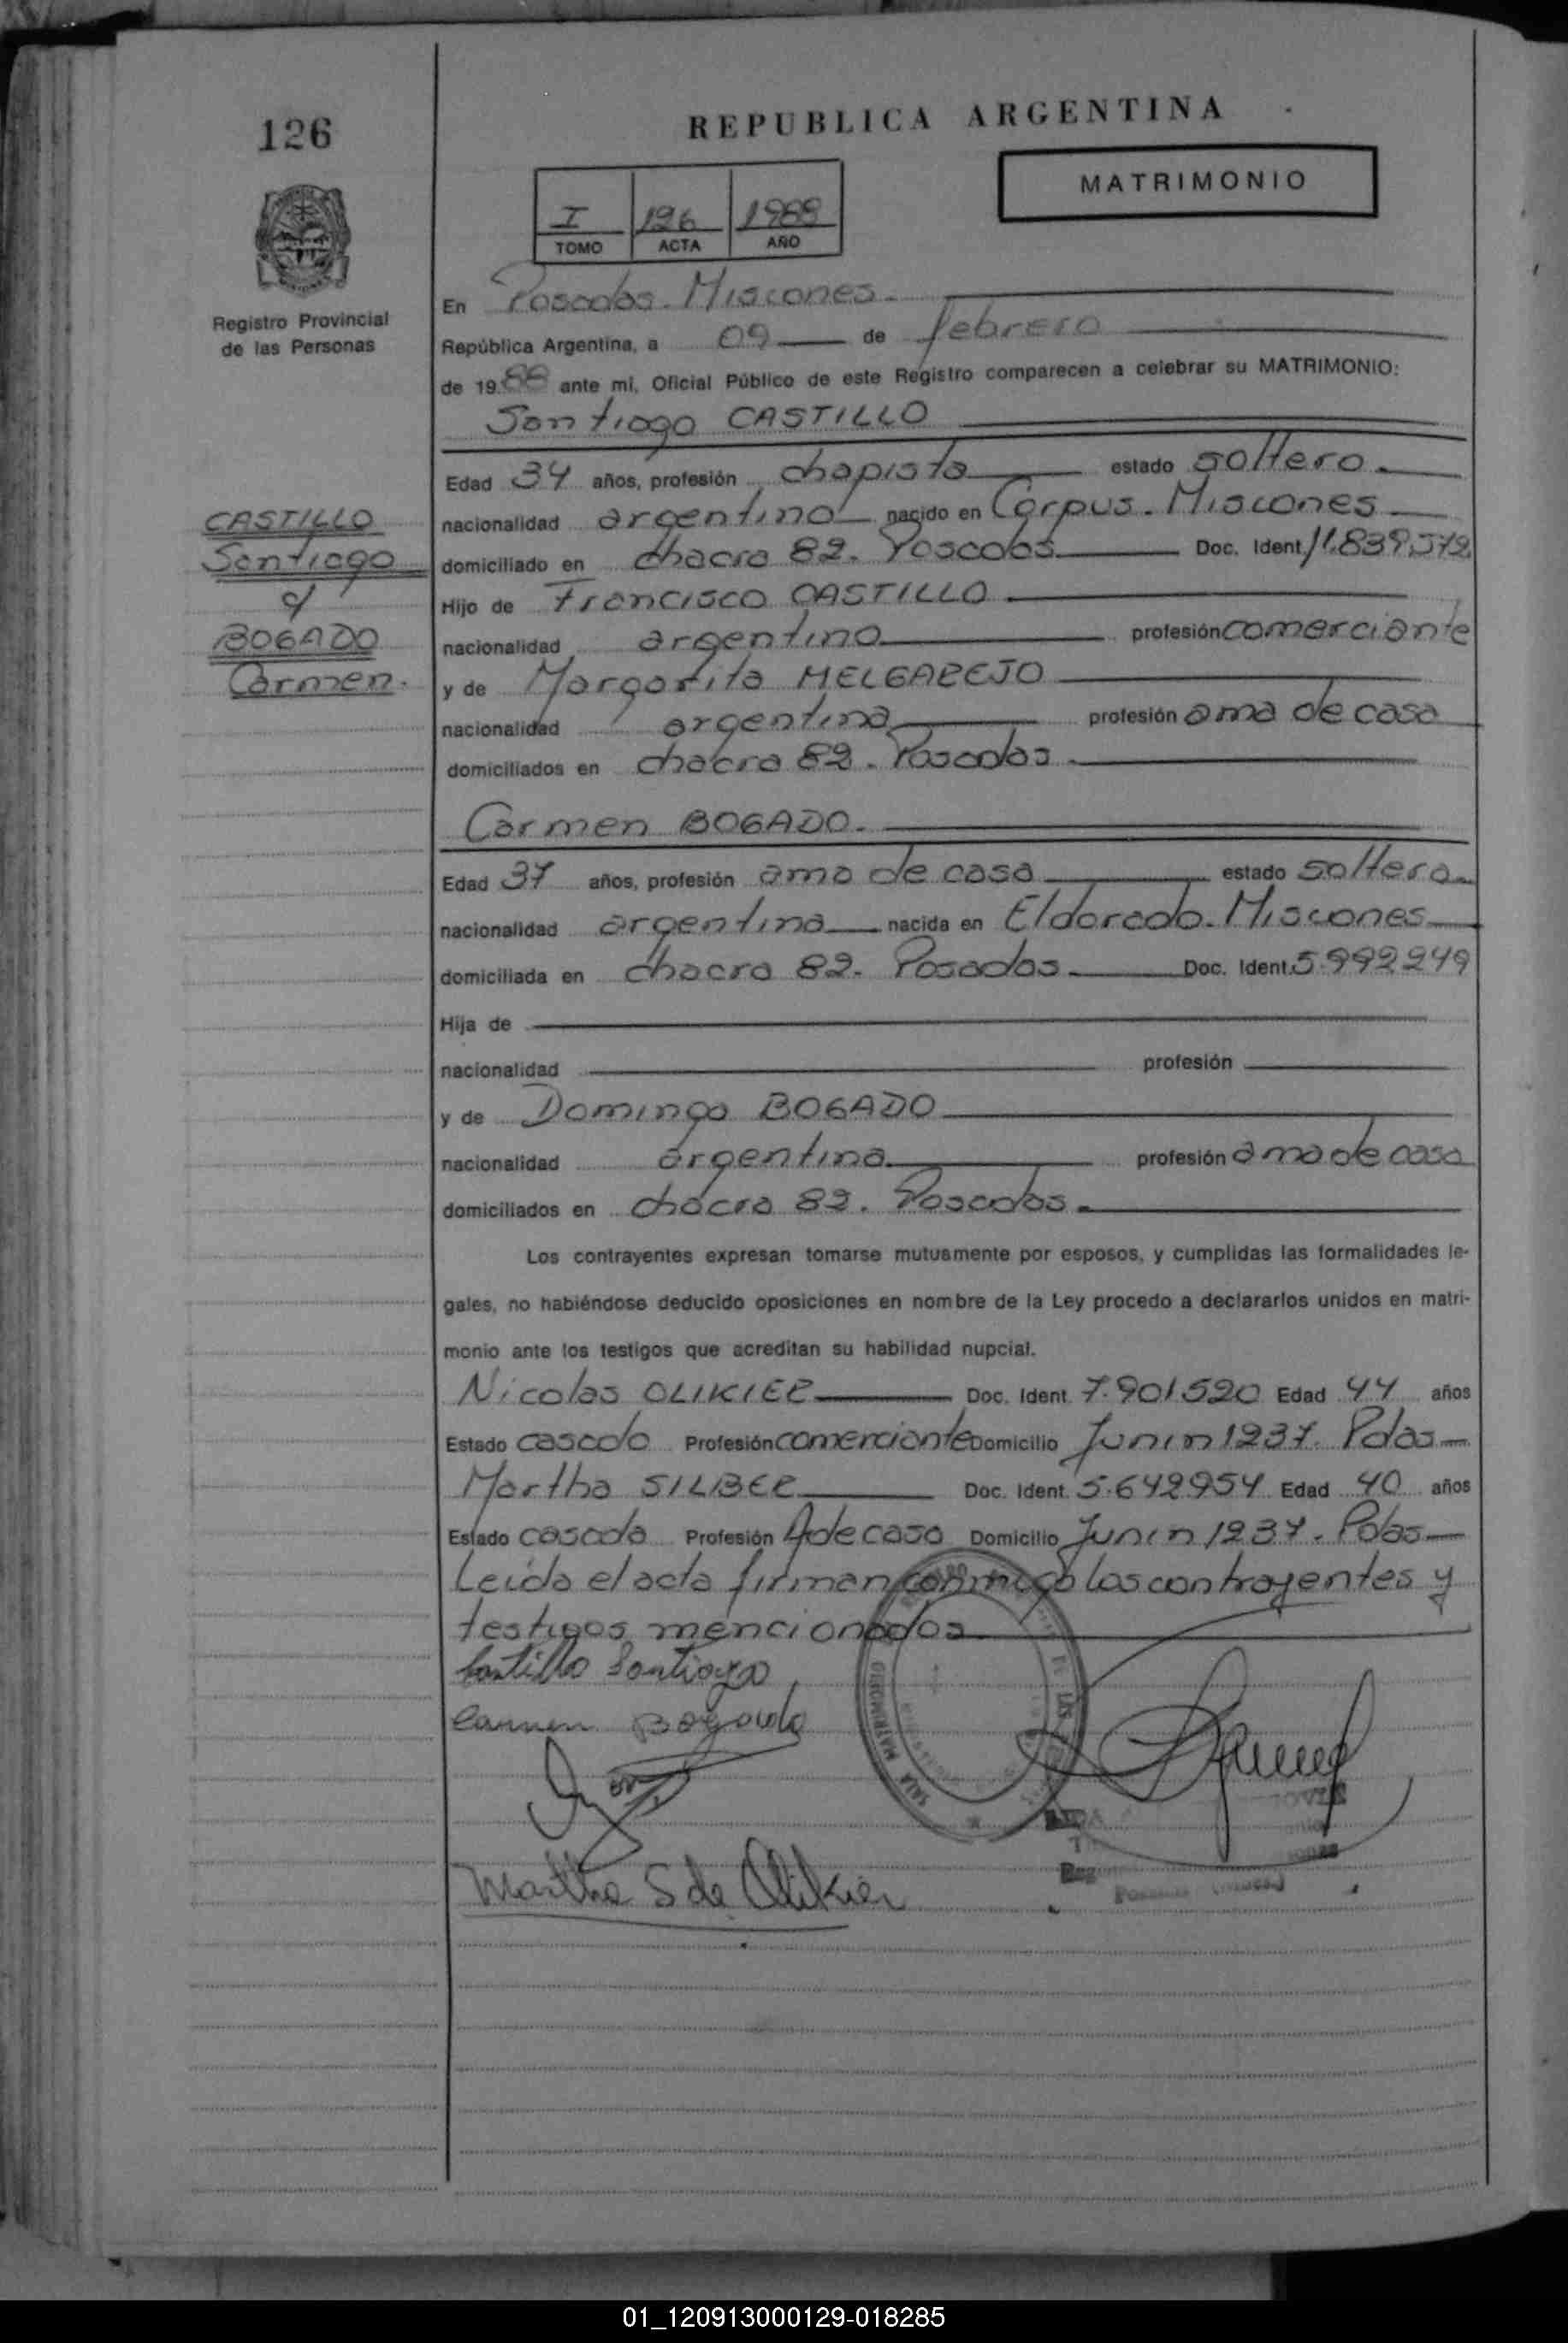 126
REPUBLICA ARGENTINA
MATRIMONIO
I 126 1988
TOMO ACTA AÑO
Registro Provincial
de las Personas
En Posadas. Misiones.
República Argentina, a 09 de febrero
de 1988 ante mi, Oficial Público de este Registro comparecen a celebrar su MATRIMONIO:
Santiago CASTILLO
Edad 34 años, profesión chapista estado soltero.
CASTILLO
Santiago
c/
BOGADO
Carmen.
nacionalidad argentino nacido en Corpus. Misiones
domiciliado en chacra 82. Posadas Doc. Ident. 11.839.572
Hijo de Francisco CASTILLO
nacionalidad argentino profesión comerciante
y de Margarita MELGAREJO
nacionalidad argentina profesión ama de casa
domiciliados en chacra 82. Posadas.
Carmen BOGADO.
Edad 37 años, profesión ama de casa estado soltera
nacionalidad argentina nacida en Eldorado. Misiones
domiciliada en chacra 82. Posadas. Doc. Ident. 5.992249
Hija de
nacionalidad profesión
y de Dominga BOGADO
nacionalidad argentina profesión ama de casa
domiciliados en chacra 82. Posadas.
Los contrayentes expresan tomarse mutuamente por esposos, y cumplidas las formalidades le-
gales, no habiéndose deducido oposiciones en nombre de la Ley procedo a declararlos unidos en matri-
monio ante los testigos que acreditan su habilidad nupcial.
Nicolas OLIKIER Doc. Ident. 7.901520 Edad 44 años
Estado casado Profesión comerciante Domicilio Junin 1237. Pdas
Martha SILBER Doc. Ident. 5.642954 Edad 40 años
Estado casada Profesión A de casa Domicilio Junin 1237. Pdas
Leida el acta firman conmigo los contrayentes y
testigos mencionados
Castillo Santiago
Carmen Bogado
SALA MATRIMONIO
Martha S de Olikier
01_120913000129-018285